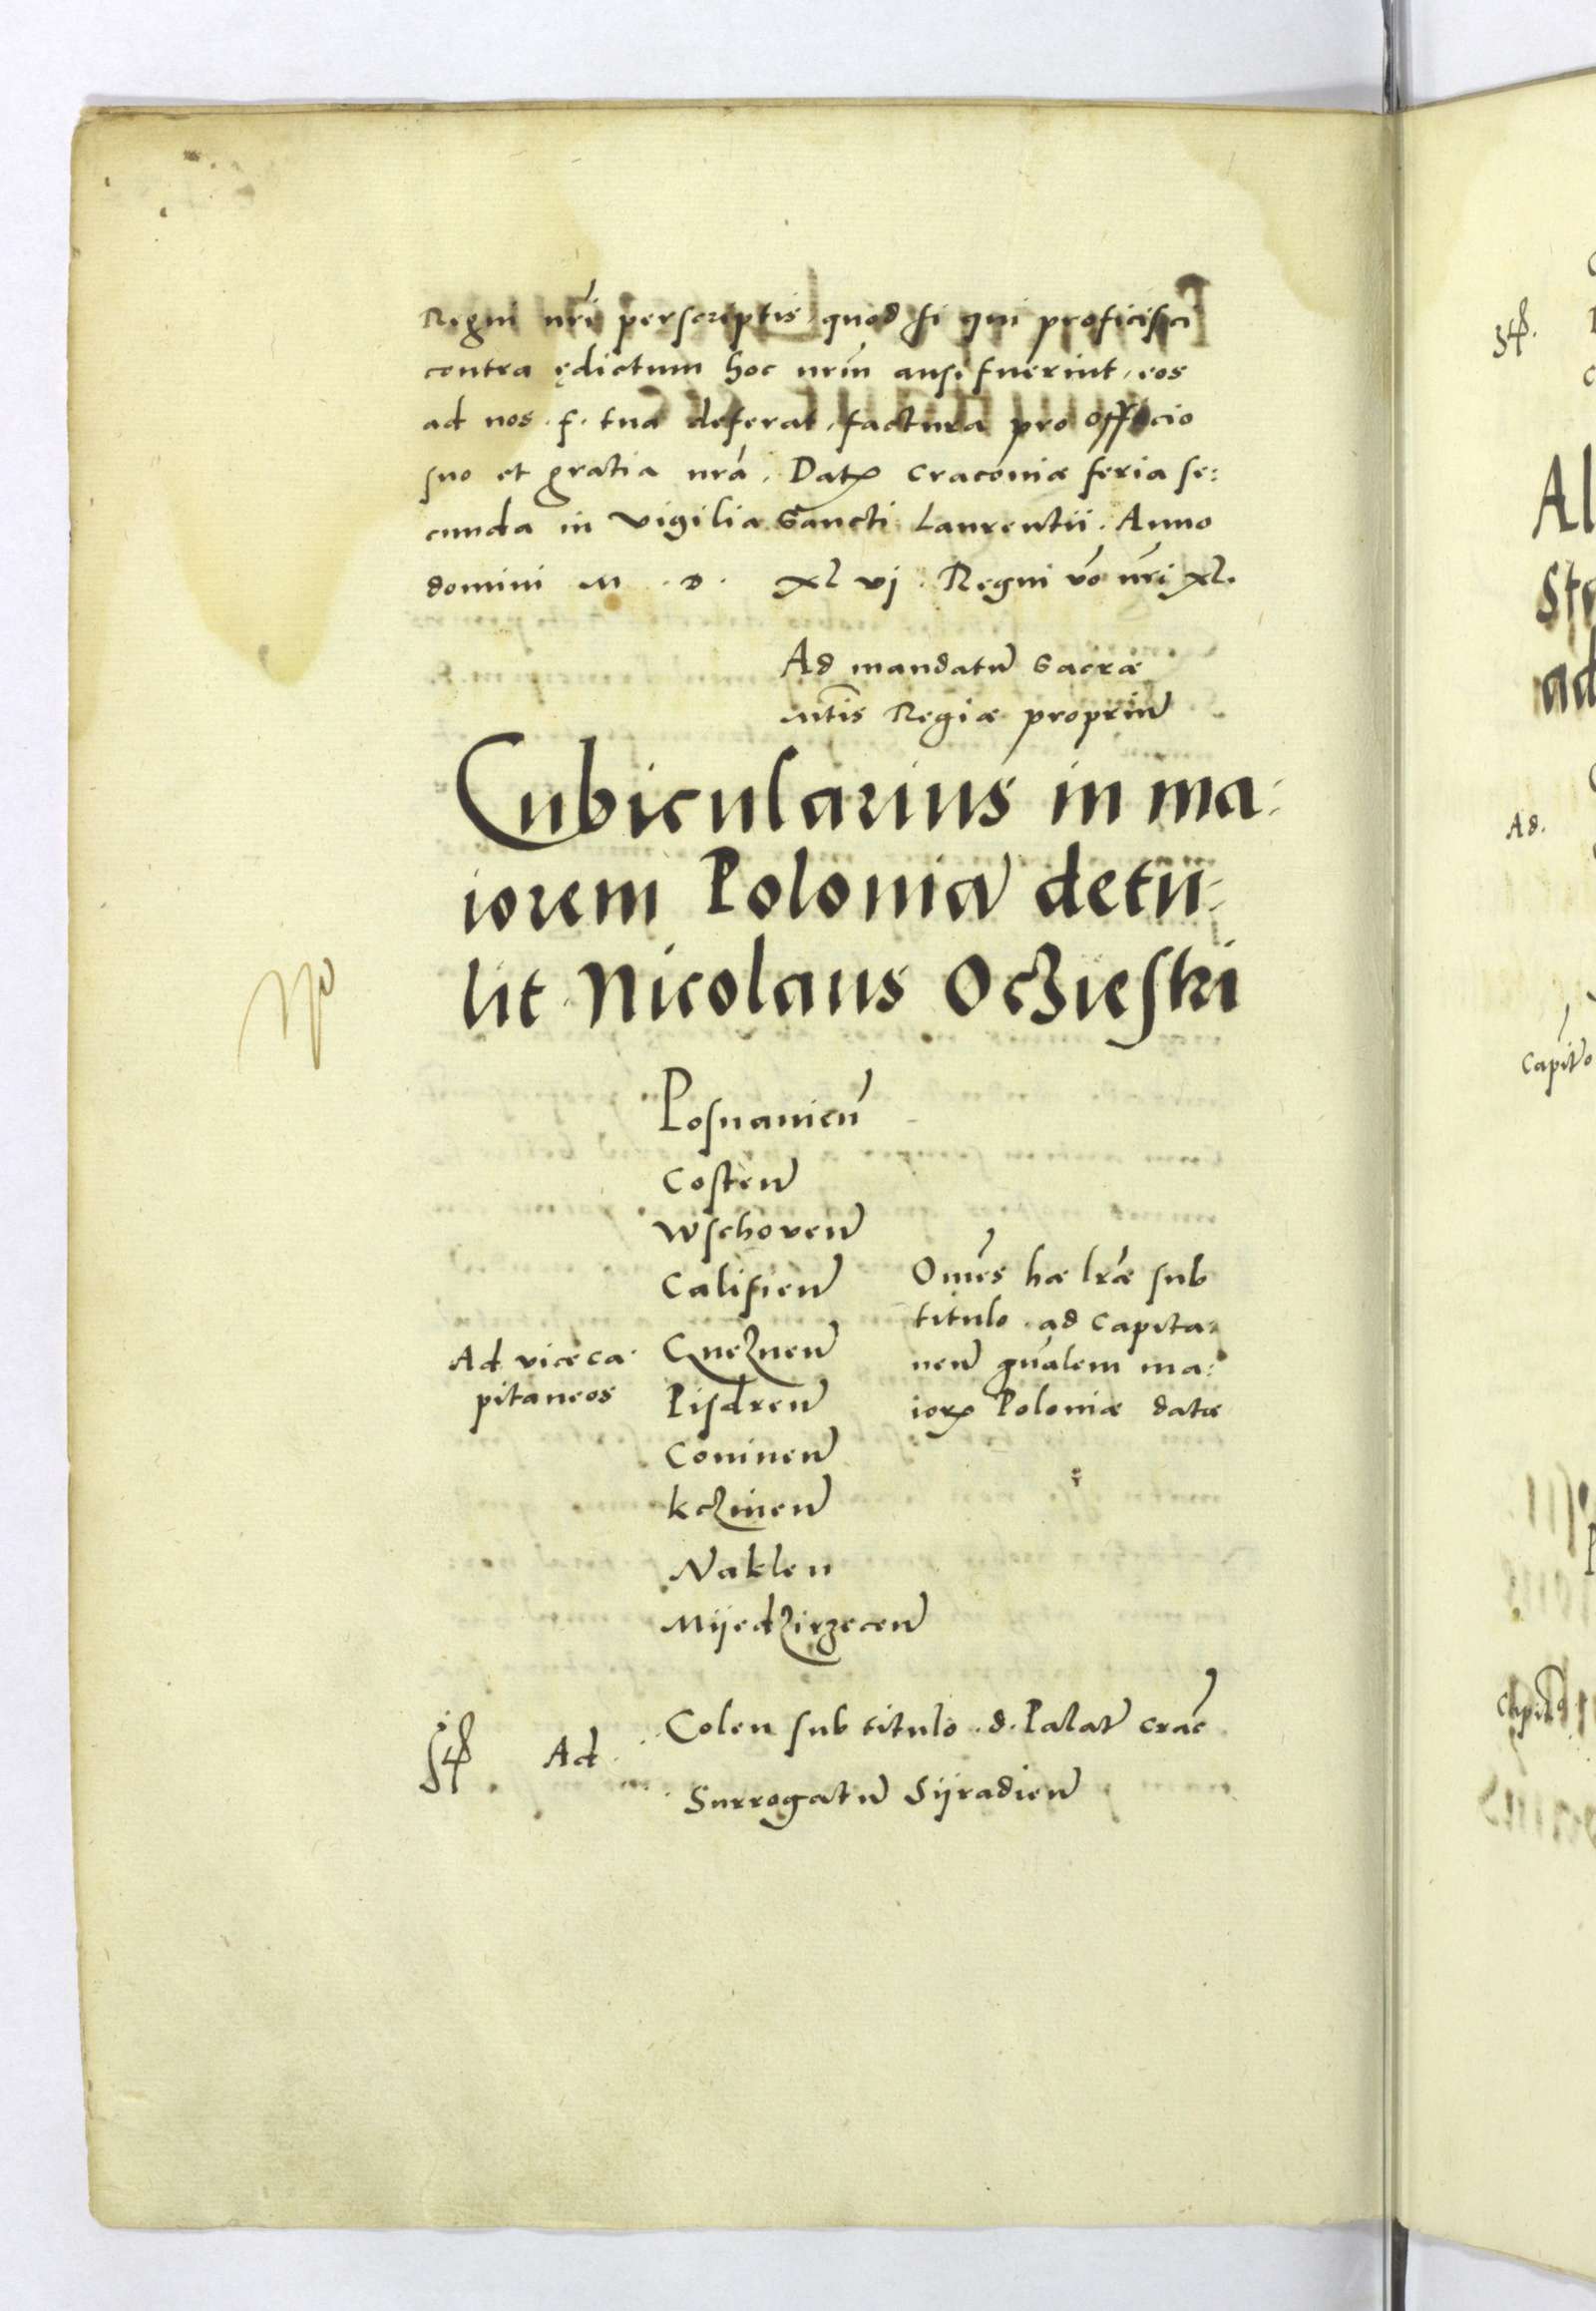 Regni nr̃i perscriptis, quod si qui proficisci
contra ędictum hoc nr̃m ausi fuerint, eos
ad nos .f. tua deferat, factura pro officio
suo et gratia nr̃a. Datꝝ Cracoviæ feria se:
cunda in vigilia Sancti Laurentii. Anno
domini M . D . XL vj . Regni ṽo nr̃i XL.
Ad mandatũ Sacræ
Mt̃is Regiæ propriũ
Cubicularius in ma:
iorem Poloniã detu:
lit Nicolaus Oczieski
Posnanieñ
Costeñ
Wschoveñ
Calisieñ
Gnezneñ
Pisdreñ
Conineñ
kczineñ
Naklen
Miiedzirzeceñ
Ad viceca
pitaneos
Om̃es hæ lr̃æ sub
titulo ad Capita:
neũ gñalem ma:
iorꝝ Poloniæ datæ
Ad
Colen sub titulo .d. Palat̃ crac̃
Surrogatũ Siiradieñ
Ad.